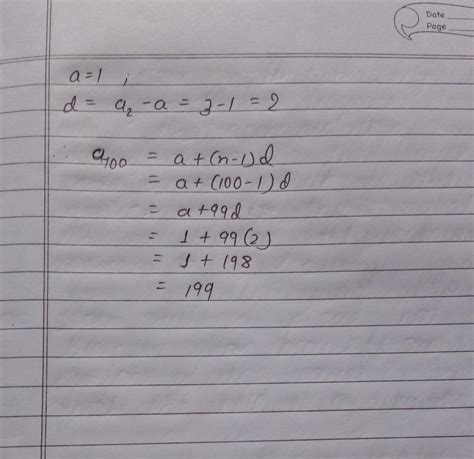 Date
Page
a=1 ;
d = a₂ -a = 3-1 = 2
∴ a₁₀₀ = a+(n-1)d
= a+(100-1)d
= a+99d
= 1 + 99(2)
= 1 + 198
= 199